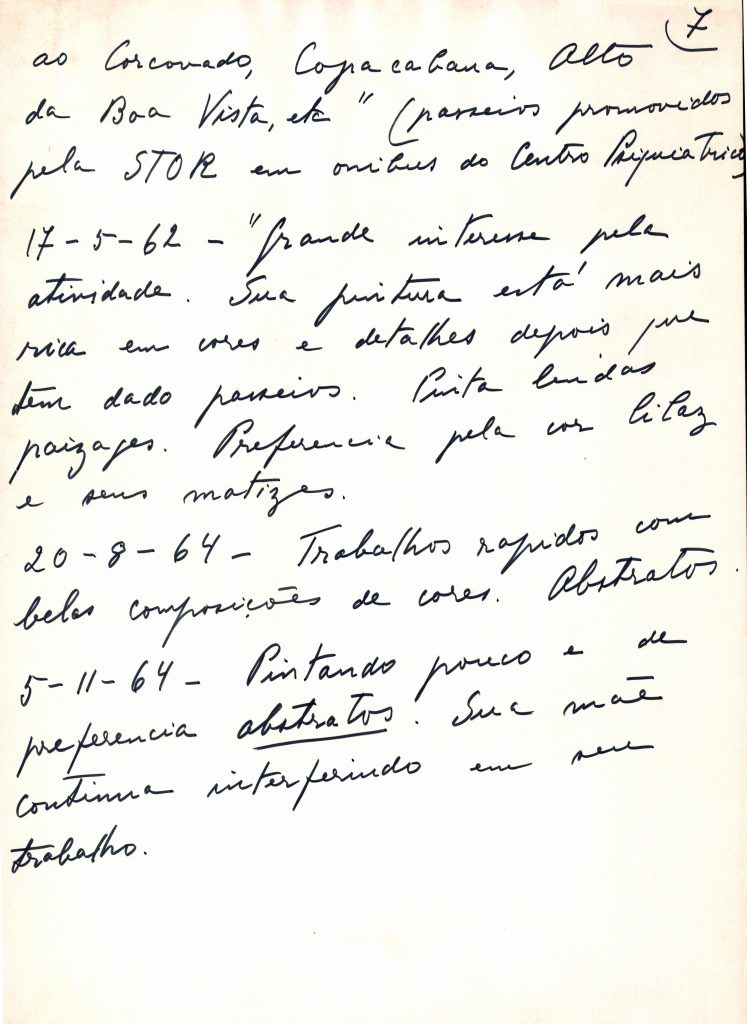 7
ao Corcovado, Copacabana, Alto
da Boa Vista, etc" (passeios promovidos
pela STOR em onibus do Centro Psiquiatrico)
17-5-62 - "Grande interesse pela
atividade. Sua pintura está mais
rica em cores e detalhes depois que
tem dado passeios. Pinta lindas
paizages. Preferencia pela cor lilaz
e seus matizes.
20-8-64 - Trabalhos rapidos com
belas composições de cores. Abstratos.
5-11-64 - Pintando pouco e de
preferencia abstratos. Sua mãe
continua interferindo em seu
trabalho.